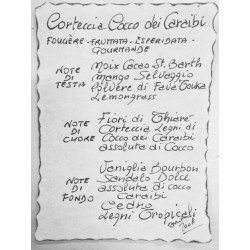 Corteccia Cocco dei Caraibi
FOUGÈRE - FRUTTATA - ESPERIDATA -
GOURMANDE
NOTE DI TESTA
Noix Cacao St. Barth
Mango Selvaggio
Polvere di Fava Touka
Lemongrass
NOTE DI CUORE
Fiori di Thiaré
Corteccia Legni di
Cocco dei Caraibi
assoluta di Cocco
NOTE DI FONDO
Vaniglia Bourbon
Sandalo Dolce
assoluta di cocco
Caraibi
Cedro
Legni Tropicali